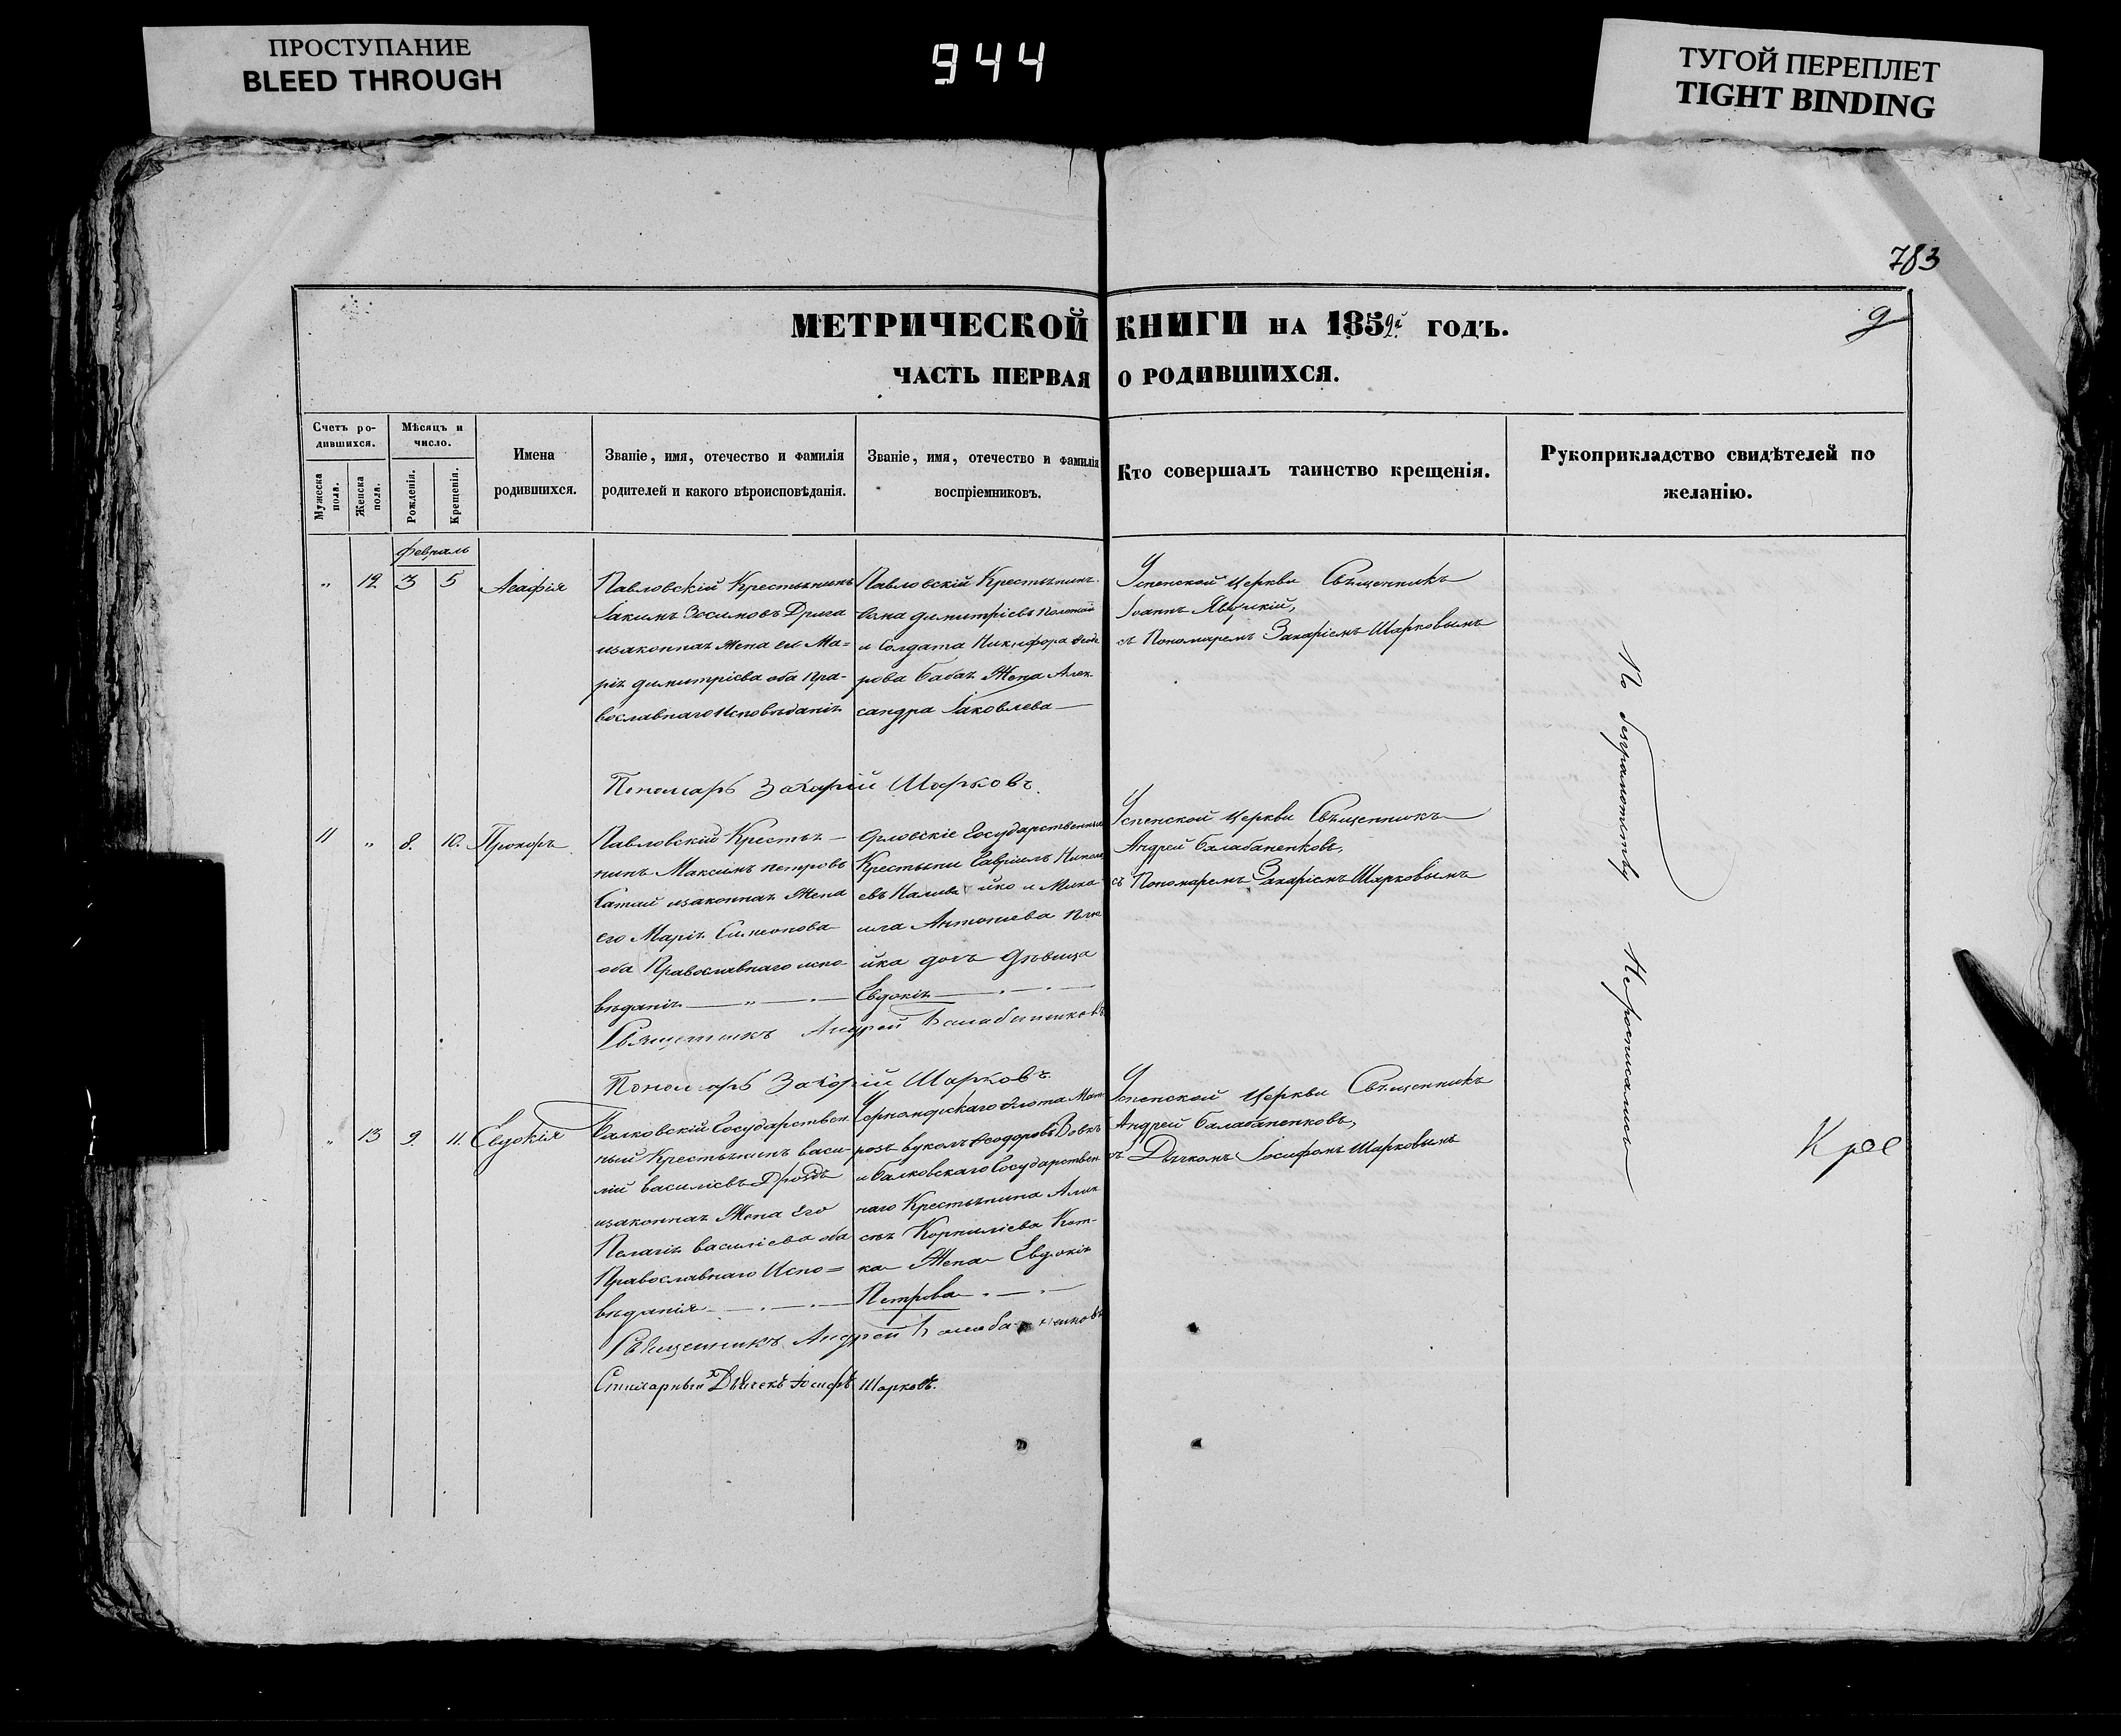 ПРОСТУПАНИЕ
BLEED THROUGH
944
ТУГОЙ ПЕРЕПЛЕТ
TIGHT BINDING
783
МЕТРИЧЕСКОЙ КНИГИ НА 1852й ГОДЪ.
9
ЧАСТЬ ПЕРВАЯ О РОДИВШИХСЯ.
Счетъ ро-
дившихся.
Мужеска
пола.
Женска
пола.
Мѣсяцъ и
число.
Рожденія.
Крещенія.
Имена
родившихся.
Званіе, имя, отечество и фамилія
родителей и какого вѣроисповѣданія.
Званіе, имя, отечество и фамилія
воспріемниковъ.
Кто совершалъ таинство крещенія.
Рукоприкладство свидѣтелей по
желанію.
Февраль
" 12 3 5 Агафія
Павловскій Крестьянинъ
Іакимъ Зосимовъ Дрига
изаконная Жена его Ма=
рія димитріева оба Пра-
вославнаго Исповѣданія
Павловскій Крестьянинъ
димитріевъ
и Солдата Никифора Ѳеодо
рова Бабаъ Жена Алек
сандра Іаковлева
Успенской Церкви Священникъ
Іоаннъ
съ Пономаремъ Захаріемъ Шарковымъ
Пономарь Захарій Шарковъ.
11 " 8. 10. Прокофъ
Павловскій Крестья-
нинъ Максимъ Петровъ
изаконная Жена
его Марія Симеонова
оба Православнаго испо
вѣданія
Орловскіе Государственные
Крестьяне Гавріилъ
и
Антониева
дочь Дѣвица
Евдокія
Успенской Церкви Священникъ
Андрей Балабаненковъ,
съ Пономаремъ Захаріемъ Шарковымъ
Священникъ Андрей Балабаненковъ
Пономарь Захарій Шарковъ
" 13 9. 11. Евдокія
Валковскій Государствен
ный Крестьянинъ Васи-
лій Василіевъ Дроздъ
изаконная Жена Его
Пелагія Василіева оба
Православнаго Испо=
вѣданія
Черноморскаго Флота Мат
росъ Вуколъ Ѳеодоровъ Вовкъ
и Валковскаго Государствен
наго Крестьянина Алек
сѣя Корнилієва Кот-
ка Жена Евдокія
Петрова
Успенской Церкви Священникъ
Андрей Балабаненковъ,
съ Дьячкомъ Іосифомъ Шарковымъ
Священникъ Андрей Балабаненковъ
Дьячекъ Іосифъ Шарковъ.
По безграмотству Неросписались